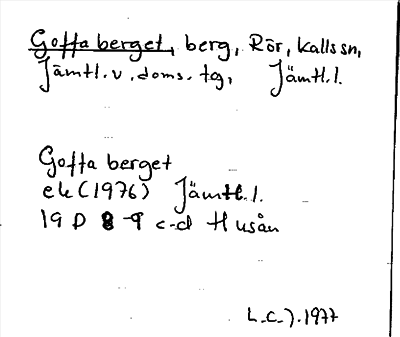 Goffa berget, berg, Rör, Kallssn,
Jämtl. v. doms. tg, Jämtl. l.
Goffa berget
ek (1976) Jämtl. l.
19 D 8-9 c-d Husån
L.C.J. 1977